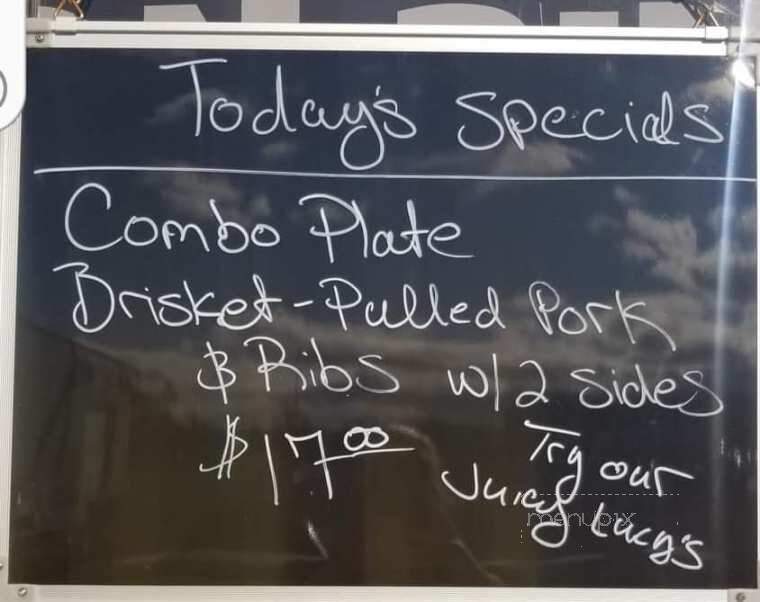 Today's Specials
Combo Plate
Brisket-Pulled Pork
& Ribs w/2 sides
$17.00
Try our
Juicy Lucy's
menupix